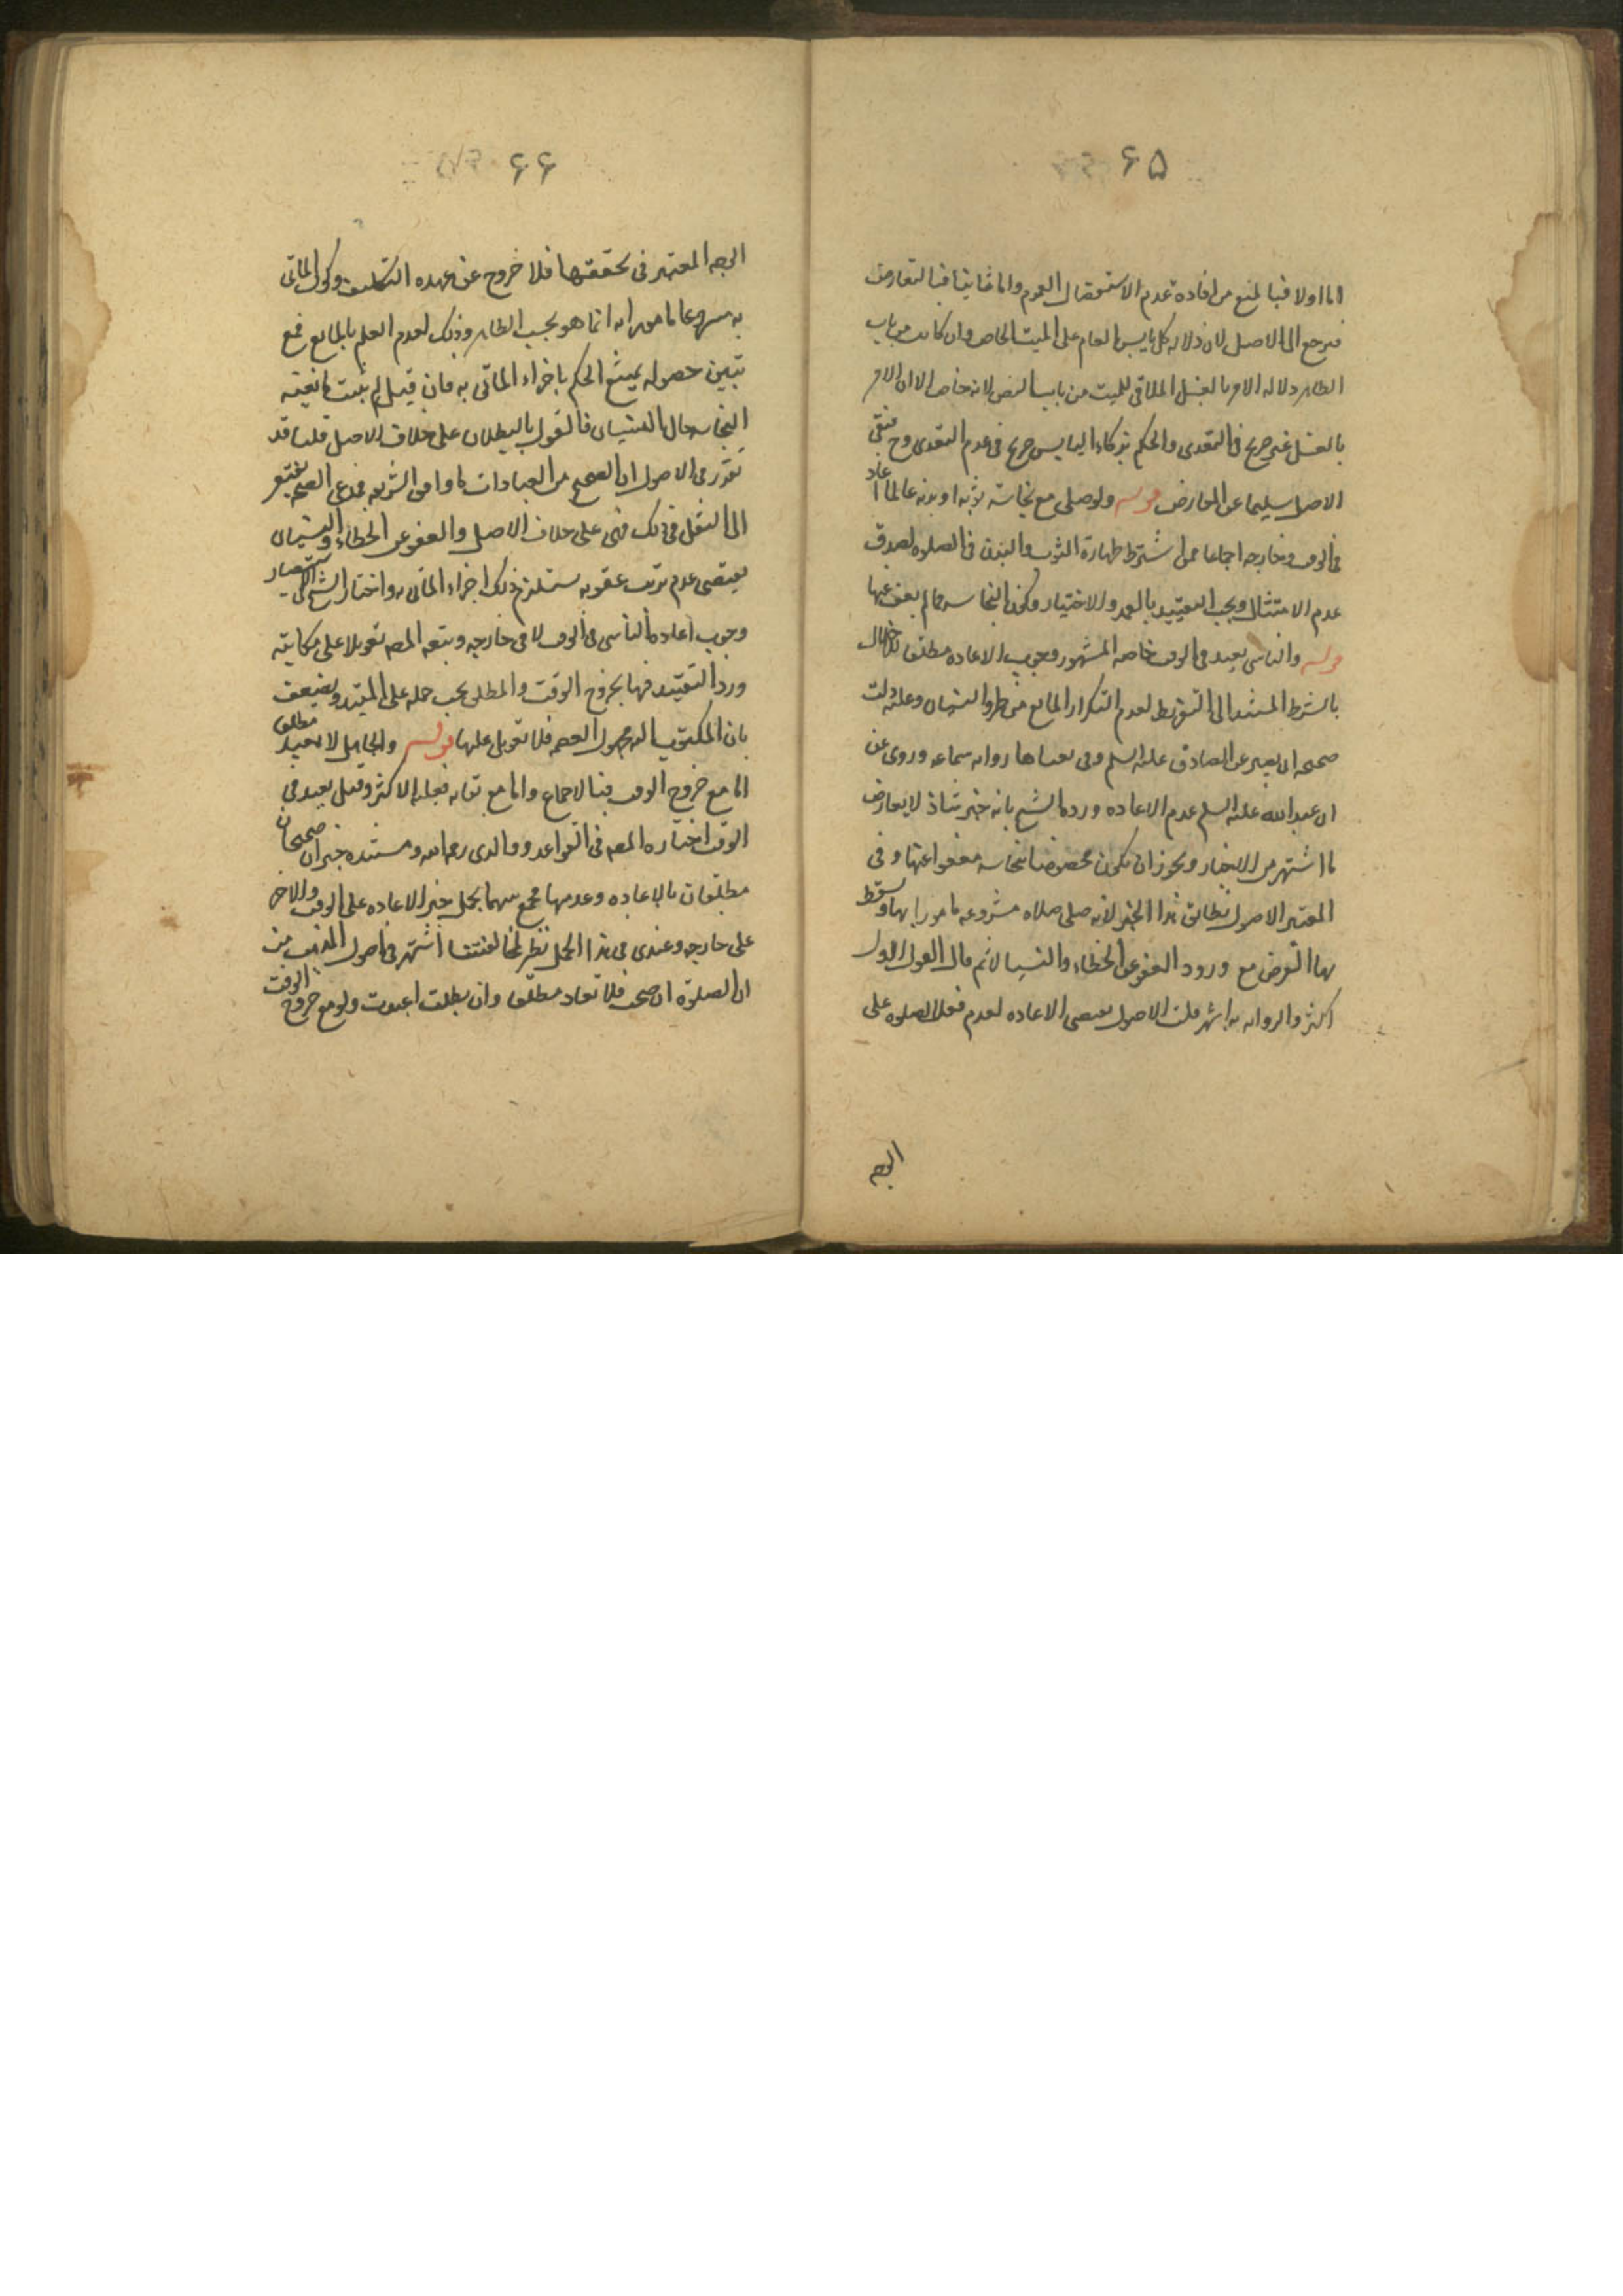 ۶۵
اما اولا فبالمنع من افادة عدم الاستفصال العموم واما ثانيا فبالتعارض
فيرجع الى الاصل لان دلاله كل يابس العام على الميت الخاص وان كانت من باب
الظاهر ودلاله الامر بالغسل الملاقى للميت من باب النص لانه خاص الا ان الامر
بالغسل غير صريح فى التعدى والحكم بزكاة اليابس صريح فى عدم التعدى وح فيبقى
الاصل سليما عن المعارض قوله ولو صلى مع نجاسة ثوبه او بدنه عالما اعاد
فى الوقت وخارجه اجماعا ممن اشترط طهارة الثوب والبدن فى الصلوه لصدق
عدم الامتثال ويجب التقييد بالعمد والاختيار وكون النجاسه مما لم يعف عنها
قوله والناسى يعيد فى الوقت خاصه المشهور وجوب الاعاده مطلقا للاخلال
بالشرط المستند الى التفريط لعدم التكرار المانع من طرو النسيان وعليه دلت
صحيحه ابى بصير عن الصادق عليه السلم وفى معناها روايه سماعه وروى عن
ابى عبد الله عليه السلم عدم الاعاده ورده الشيخ بانه خبر شاذ لا يعارض
ما اشتهر من الاخبار ويجوز ان يكون مخصوصا بنجاسه معفوا عنها وفى
المعتبر الاصول يطابق هذا الخبر لانه صلى صلاه مشروعه مامورا بها وسقط
بها الفرض مع ورود العفو عن الخطاء والنسيا لانم قال القول الاول
اكثر والروايه به اشهر قلت الاصول يقتضى الاعاده لعدم فعل الصلوه على
الوجه
۶۶
الوجه المعتبر فى تحققها فلا خروج عن عهده التكليف وكون الماتى
به مشروعا مامورا به انما هو بحسب الظاهر وذلك لعدم العلم بالمانع فمع
تبين حصوله يمتنع الحكم باجزاء الماتى به فان قيل لم يثبت مانعيه
النجاسه حال النسيان فالقول بالبطلان على خلاف الاصل قلنا قد
تقرر فى الاصول ان الصحيح من العبادات ما وافق الشريعه فمدعى الصحه يفتقر
الى النقل فى ذلك فهى على خلاف الاصل والعفو عن الخطاء والنسيان
يقتضى عدم ترتب عقوبه يستلزم ذلك اجزاء الماتى به واختار الشيخ فى الاستبصار
وجوب اعاده الناسى فى الوقت لا فى خارجه وتبعه المصه تعويلا على مكاتبه
ورد التقييد فيها بخروج الوقت والمطلق يجب حمله على المقيد ويضعف
بان المكتوب اليه مجهول العصمه فلا تعويل عليها قوله والجاهل لا يعيد مطلقا
اما مع خروج الوقت فبالاجماع واما مع بقائه فعليه الاكثر وقيل يعيد فى
الوقت اختاره المصه فى القواعد ووالدى رحمه الله ومستنده خبران صحيحان
مطلقان بالاعاده وعدمها فجمع بينهما بحمل خبر الاعاده على الوقت والاخر
على خارجه وعندى فى هذا الحمل نظر لمخالفته ما اشتهر فى اصول المذهب من
ان الصلوة ان صحت فلا تعاد مطلقا وان بطلت اعيدت ولو مع خروج الوقت